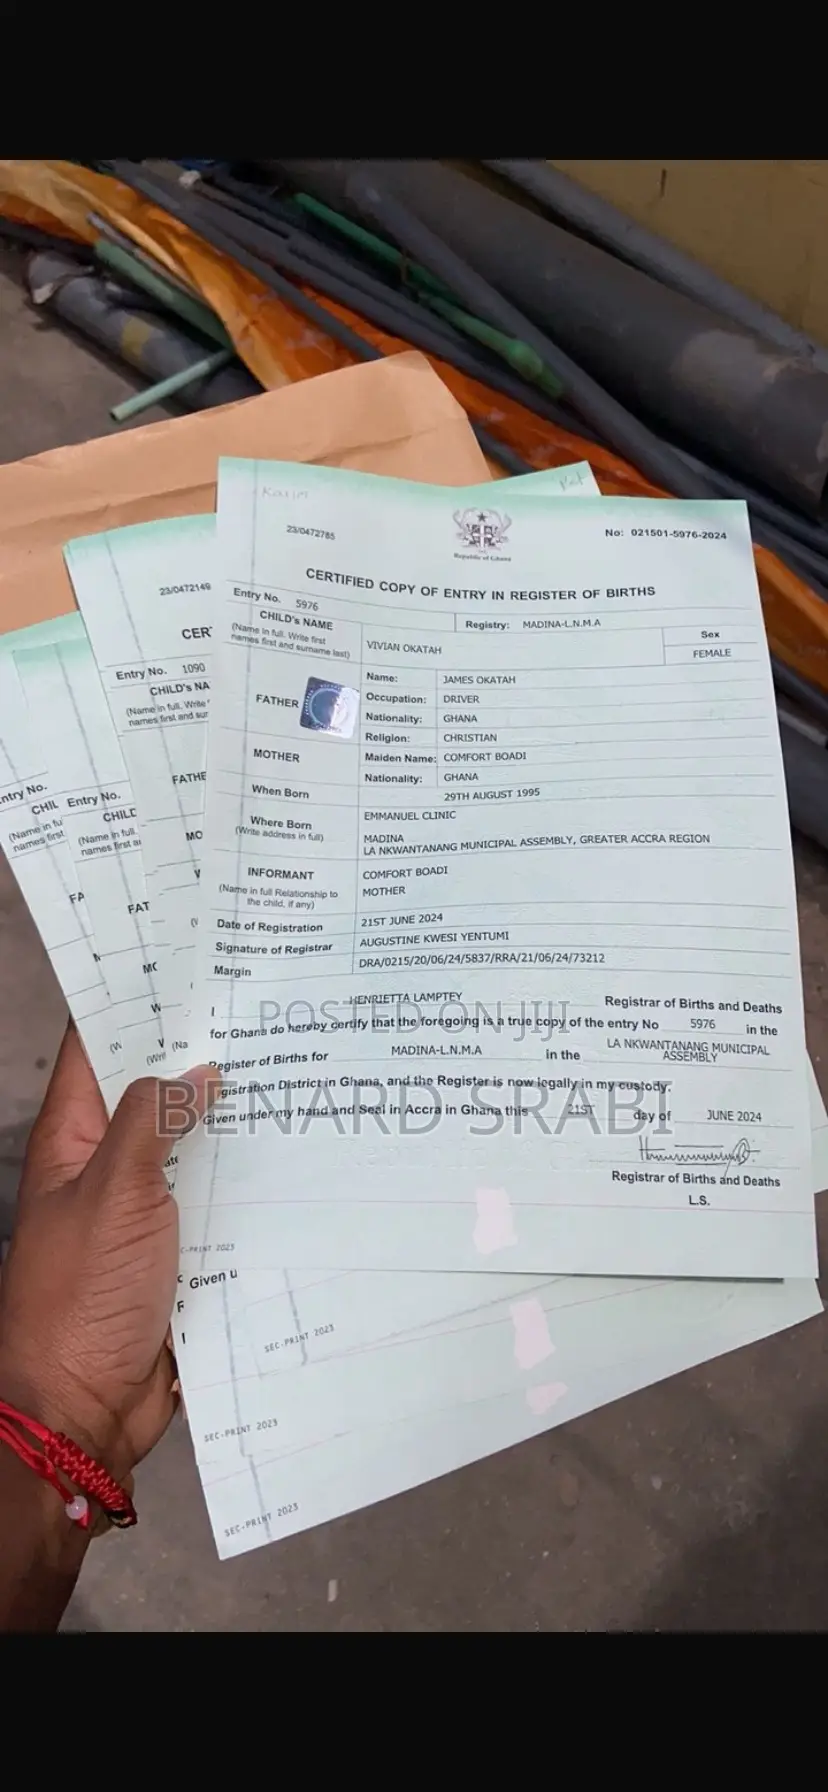 Karim
23/0472785
Republic of Ghana
No: 021501-5976-2024
CERTIFIED COPY OF ENTRY IN REGISTER OF BIRTHS
Entry No. 5976
Registry: MADINA-L.N.M.A
CHILD's NAME
(Name in full. Write first
names first and surname last)
VIVIAN OKATAH
Sex
FEMALE
FATHER
Name: JAMES OKATAH
Occupation: DRIVER
Nationality: GHANA
Religion: CHRISTIAN
MOTHER
Maiden Name: COMFORT BOADI
Nationality: GHANA
When Born
29TH AUGUST 1995
Where Born
(Write address in full)
EMMANUEL CLINIC
MADINA
LA NKWANTANANG MUNICIPAL ASSEMBLY, GREATER ACCRA REGION
INFORMANT
(Name in full Relationship to
the child, if any)
COMFORT BOADI
MOTHER
Date of Registration 21ST JUNE 2024
Signature of Registrar AUGUSTINE KWESI YENTUMI
Margin DRA/0215/20/06/24/5837/RRA/21/06/24/73212
I HENRIETTA LAMPTEY Registrar of Births and Deaths
for Ghana do hereby certify that the foregoing is a true copy of the entry No 5976 in the
Register of Births for MADINA-L.N.M.A in the LA NKWANTANANG MUNICIPAL
ASSEMBLY
gistration District in Ghana, and the Register is now legally in my custody.
Given under my hand and Seal in Accra in Ghana this 21ST day of JUNE 2024
Registrar of Births and Deaths
L.S.
C-PRINT 2023
POSTED ON JIJI
BENARD SRABI
23/0472149
CER
Entry No. 1090
CHILD's NA
(Name in full. Write
names first and sur
FATHE
MO
Entry No.
CHILD
(Name in full.
names first a
FAT
MO
W
ntry No.
CHIL
(Name in fu
names first
FA
Given u
SEC-PRINT 2023
SEC-PRINT 2023
SEC-PRINT 2023